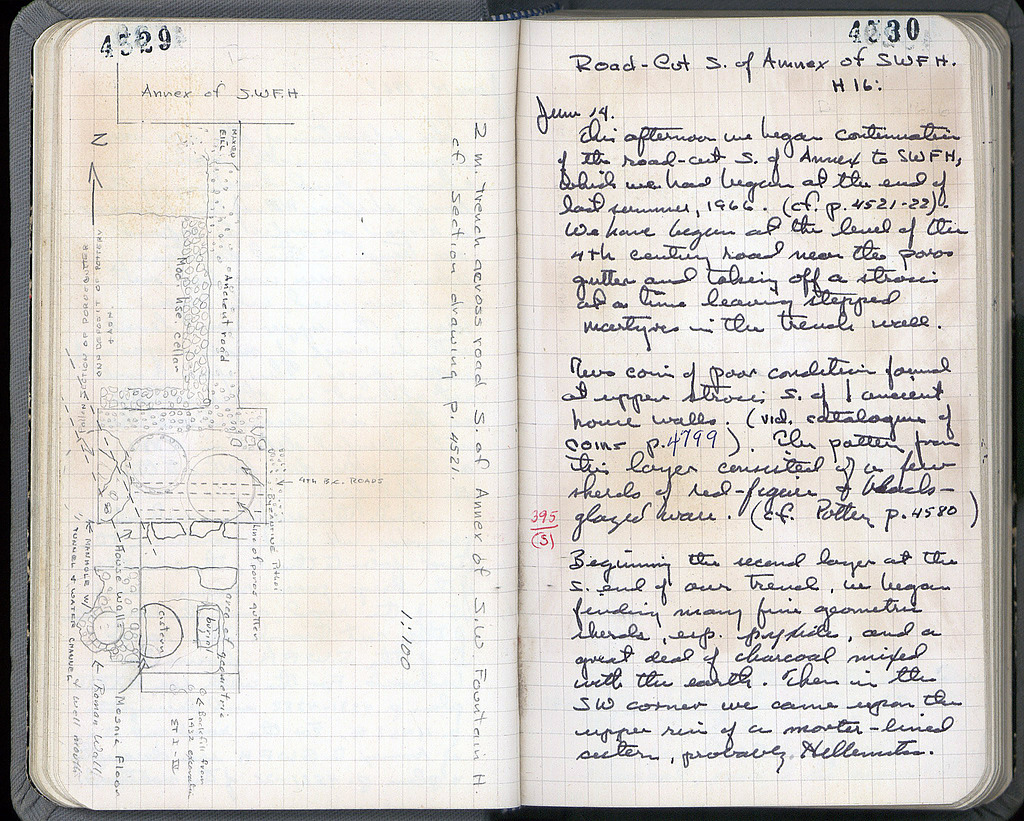 4529
Annex of S.W.F.H
N
MIXED
FILL
Ancient road
Mod. Hse. cellar
FALLEN SECTION OF POROS GUTTER
AND DEPOSIT OF POTTERY
+ ASH
4TH B.C. ROADS
Byzantine Pithoi
line of poros gutter
area of geometric
burial
cistern
House walls
MANHOLE W/
TUNNEL & WATER CHANNEL & well mouth
Roman Wall
Mosaic Floor
Backfill from
1932 excavation
ΣΤ I - IV
2 m. trench across road S. of Annex of S.W. Fountain H.
cf. section drawing p. 4521.
1:100
4530
Road-Cut S. of Annex of SWFH.
H 16:
June 14.
This afternoon we began continuation
of the road-cut S. of Annex to SWFH,
which we had begun at the end of
last summer, 1966. (cf. p. 4521-22).
We have begun at the level of the
4th century road near the poros
gutter and taking off a strosis
at a time leaving stepped
martyres in the trench wall.
Two coins of poor condition found
at upper strosis S. of ancient
house walls. (vid. catalogue of
coins p. 4799). The pottery from
this layer consisted of a few
sherds of red-figure & black-
glazed ware. (cf. Pottery p. 4580)
395
(S)
Beginning the second layer at the
S. end of our trench, we began
finding many fine geometric
sherds, esp. pyxides, and a
great deal of charcoal mixed
with the earth. Then in the
SW corner we came upon the
upper rim of a mortar-lined
cistern, probably Hellenistic.